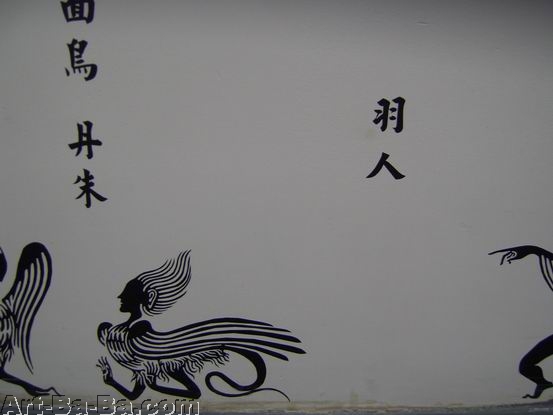 面鳥 丹朱
羽人
Art-Ba-Ba.com